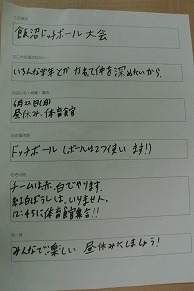 飯沼ドッチボール大会
いろんな学年とかかわって仲を深めたいから
6月22日(月)
昼休み、体育館
ドッチボール(ボールは2つ使います!)
チームは赤、白でやります。
紅白ぼうしは、いりません。
12:45に体育館集合!!
みんなで楽しい昼休みにしましょう!